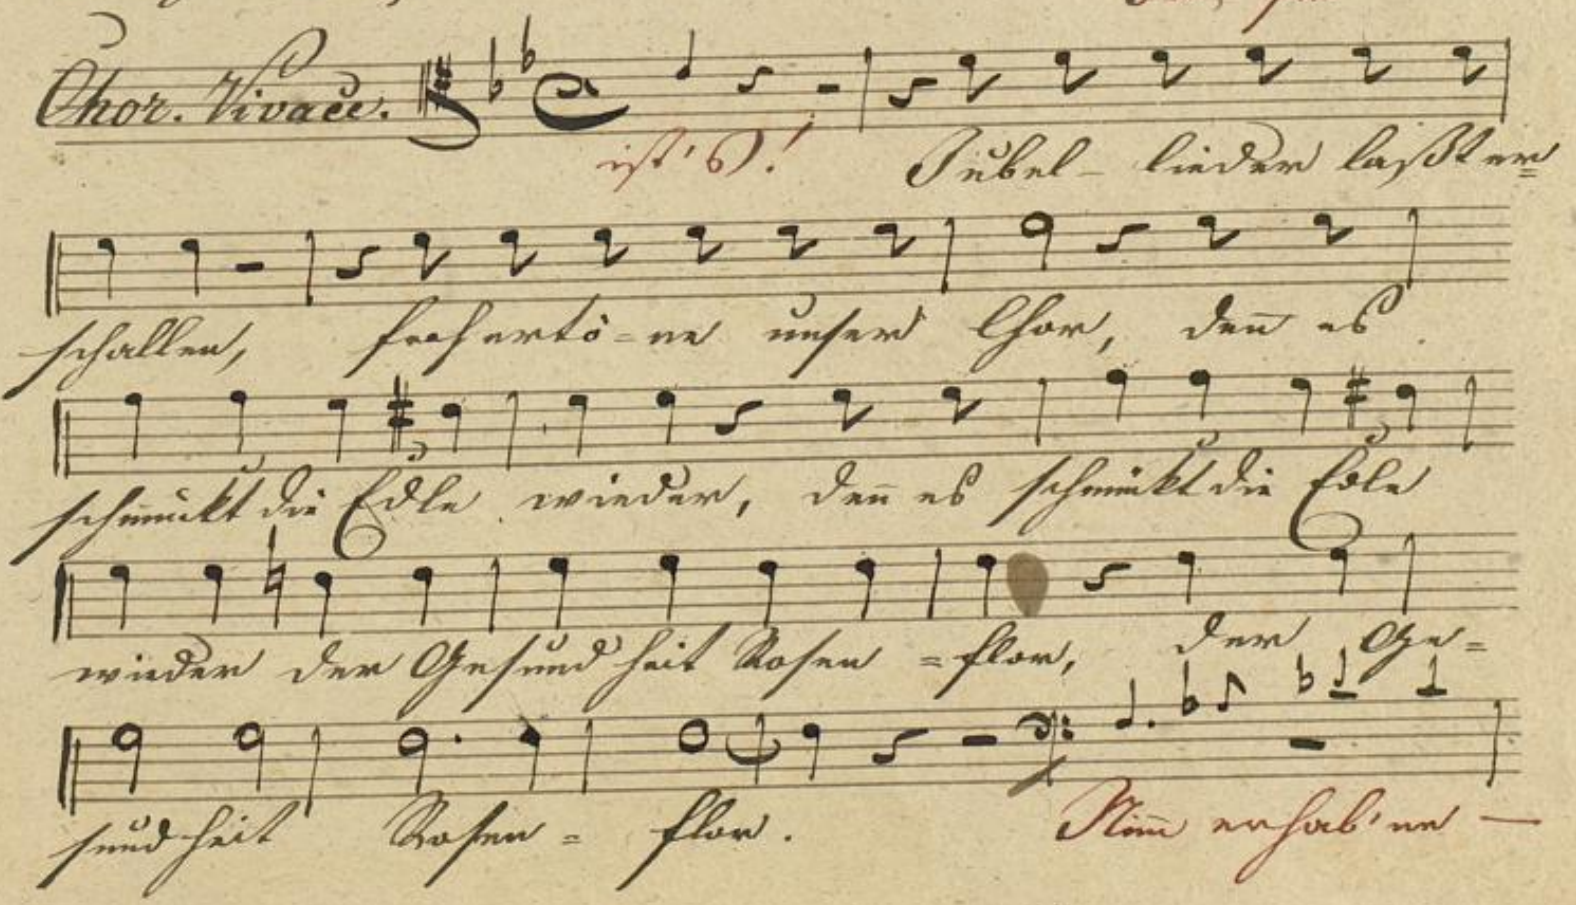 Chor. Vivace.
ist's! Jubel- lieder laßt er=
schallen, froh ertö=ne unser Chor, deñ es
schmückt die Edle wieder, deñ es schmückt die Edle
wieder der Gesundheit Rosen =flor, der Ge=
sundheit Rosen= flor. Nim̃ erhab'ne —